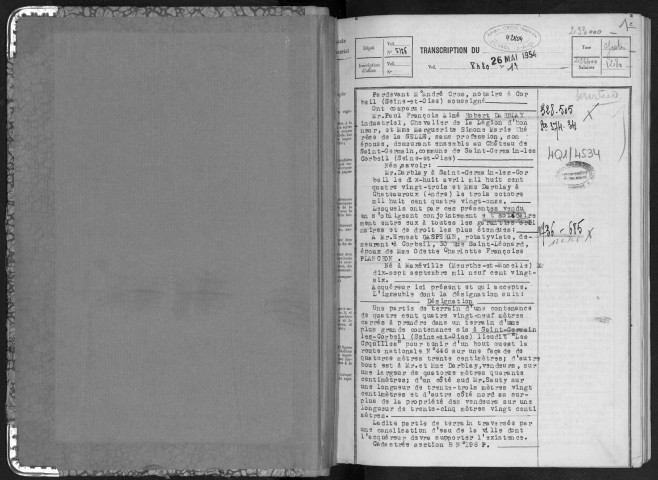 TRANSCRIPTION DU
26 MAI 1954
Vol.
N°
Dépôt
Taxe
Salaires
Pardevant Me André Cros, notaire à Cor
beil (Seine-et-Oise) soussigné
Ont comparu:
Mr. Paul François Aimé Robert DARBLAY
industriel, Chevalier de la Légion d'hon
neur, et Mme Marguerite Simone Marie Thé
rèse de la SELLE, sans profession, son
épouse, demeurant ensemble au Château de
Saint-Germain, commune de Saint-Germain-les
Corbeil (Seine-et-Oise)
Nés, savoir:
Mr. Darblay à Saint-Germain-les-Cor
beil le dix-huit avril mil huit cent
quatre vingt-trois et Mme Darblay à
Chateauroux (Indre) le trois octobre
mil huit cent quatre vingt-onze.
Lesquels ont par ces présentes vendu
en s'obligeant conjointement et solidaire
ment entre eux à toutes les garanties ordi
naires et de droit les plus étendues:
A Mr. Ernest rotativiste, de-
meurant à Corbeil, 30 rue Saint-Léonard,
époux de Mme Odette Charlotte Françoise
PLANCHON.
Né à Maxéville (Meurthe-et-Moselle) le
dix-sept septembre mil neuf cent vingt-
six.
Acquéreur ici présent et qui accepte.
L'immeuble dont la désignation suit:
Désignation
Une partie de terrain d'une contenance
de quatre cent quatre vingt-neuf mètres
carrés à prendre dans un terrain d'une
plus grande contenance sis à Saint-Germain
les-Corbeil (Seine-et-Oise) lieudit "Les
Coquilles" pour tenir d'un bout ouest la
route nationale N°446 sur une façade de
quatorze mètres trente centimètres; d'autre
bout est à Mr. et Mme Darblay, vendeurs, sur
une largeur de quatorze mètres quarante
centimètres; d'un côté sud Mr. Sauty sur
une longueur de trente-trois mètres vingt
centimètres et d'autre côté nord au sur-
plus de la propriété des vendeurs sur une
longueur de trente-cinq mètres vingt centi
mètres.
Ladite partie de terrain traversée par
une canalisation d'eau de la ville dont
l'acquéreur devra supporter l'existence.
Cadastrée section B N°196 P.
328-505
401/4534
736-685